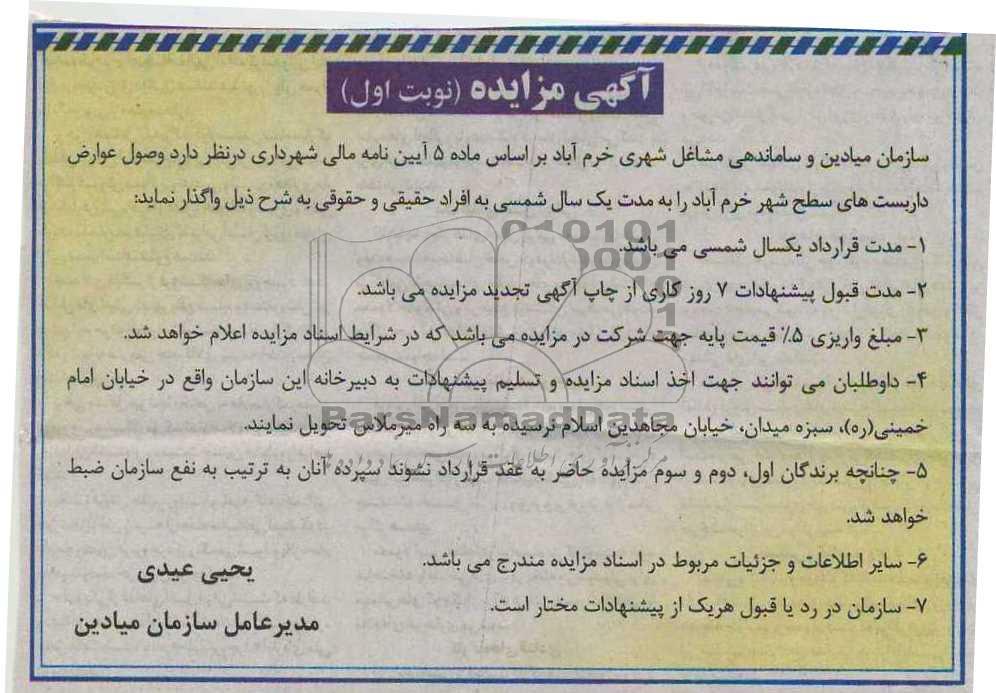 آگهی مزایده (نوبت اول)
سازمان میادین و ساماندهی مشاغل شهری خرم آباد بر اساس ماده ۵ آیین نامه مالی شهرداری درنظر دارد وصول عوارض
داربست های سطح شهر خرم آباد را به مدت یک سال شمسی به افراد حقیقی و حقوقی به شرح ذیل واگذار نماید:
۱- مدت قرارداد یکسال شمسی می باشد.
۲- مدت قبول پیشنهادات ۷ روز کاری از چاپ آگهی تجدید مزایده می باشد.
۳- مبلغ واریزی ۵٪ قیمت پایه جهت شرکت در مزایده می باشد که در شرایط اسناد مزایده اعلام خواهد شد.
۴- داوطلبان می توانند جهت اخذ اسناد مزایده و تسلیم پیشنهادات به دبیرخانه این سازمان واقع در خیابان امام
خمینی(ره)، سبزه میدان، خیابان مجاهدین اسلام نرسیده به سه راه میرملاس تحویل نمایند.
۵- چنانچه برندگان اول، دوم و سوم مزایده حاضر به عقد قرارداد نشوند سپرده آنان به ترتیب به نفع سازمان ضبط
خواهد شد.
۶- سایر اطلاعات و جزئیات مربوط در اسناد مزایده مندرج می باشد.
۷- سازمان در رد یا قبول هریک از پیشنهادات مختار است.
یحیی عیدی
مدیرعامل سازمان میادین
ParsNamadData